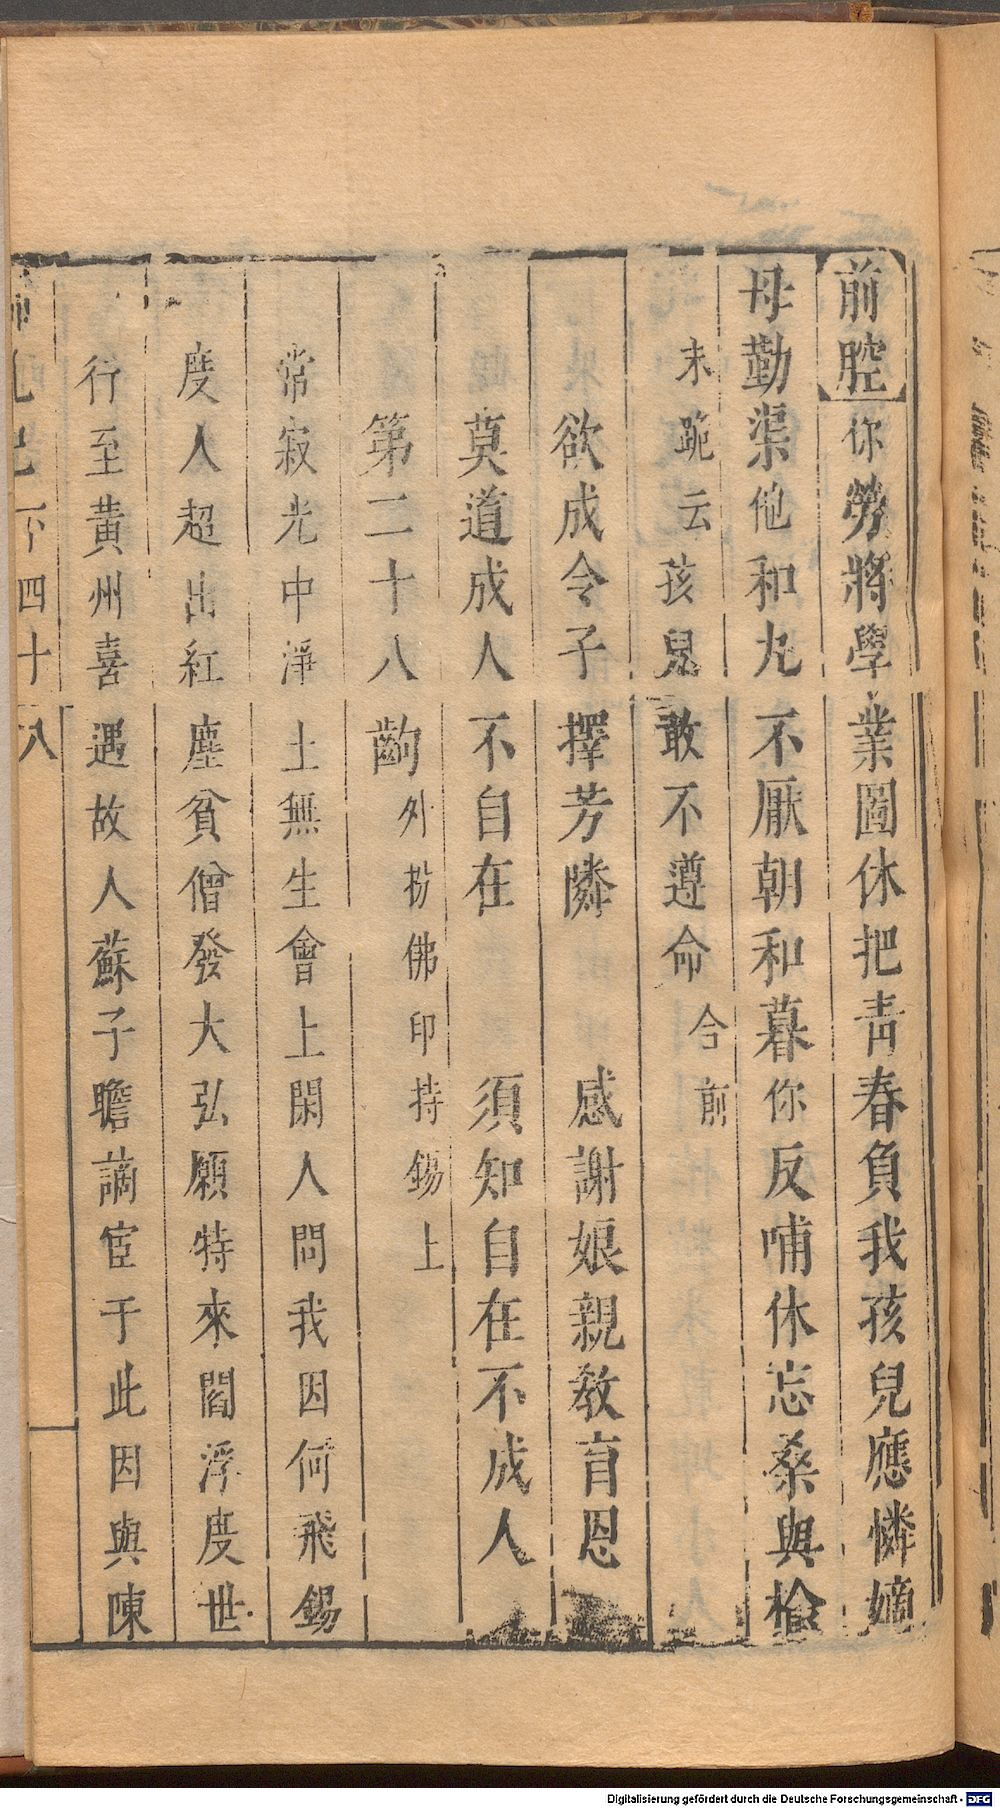 前腔你勞將學業圖休把青春負我孩兒應憐嫡
母勤渠他和丸不厭朝和暮你反哺休忘桑與榆
末跪云孩兒敢不遵命合前
欲成令子擇芳隣　感謝娘親教育恩
莫道成人不自在　須知自在不成人
第二十八齣外扮佛印持錫上
常寂光中淨土無生會上閑人問我因何飛錫
度人超出紅塵貧僧發大弘願特來閻浮度世
行至黃州喜遇故人蘇子瞻謫宦于此因與陳
下四十八
Digitalisierung gefördert durch die Deutsche Forschungsgemeinschaft - DFG